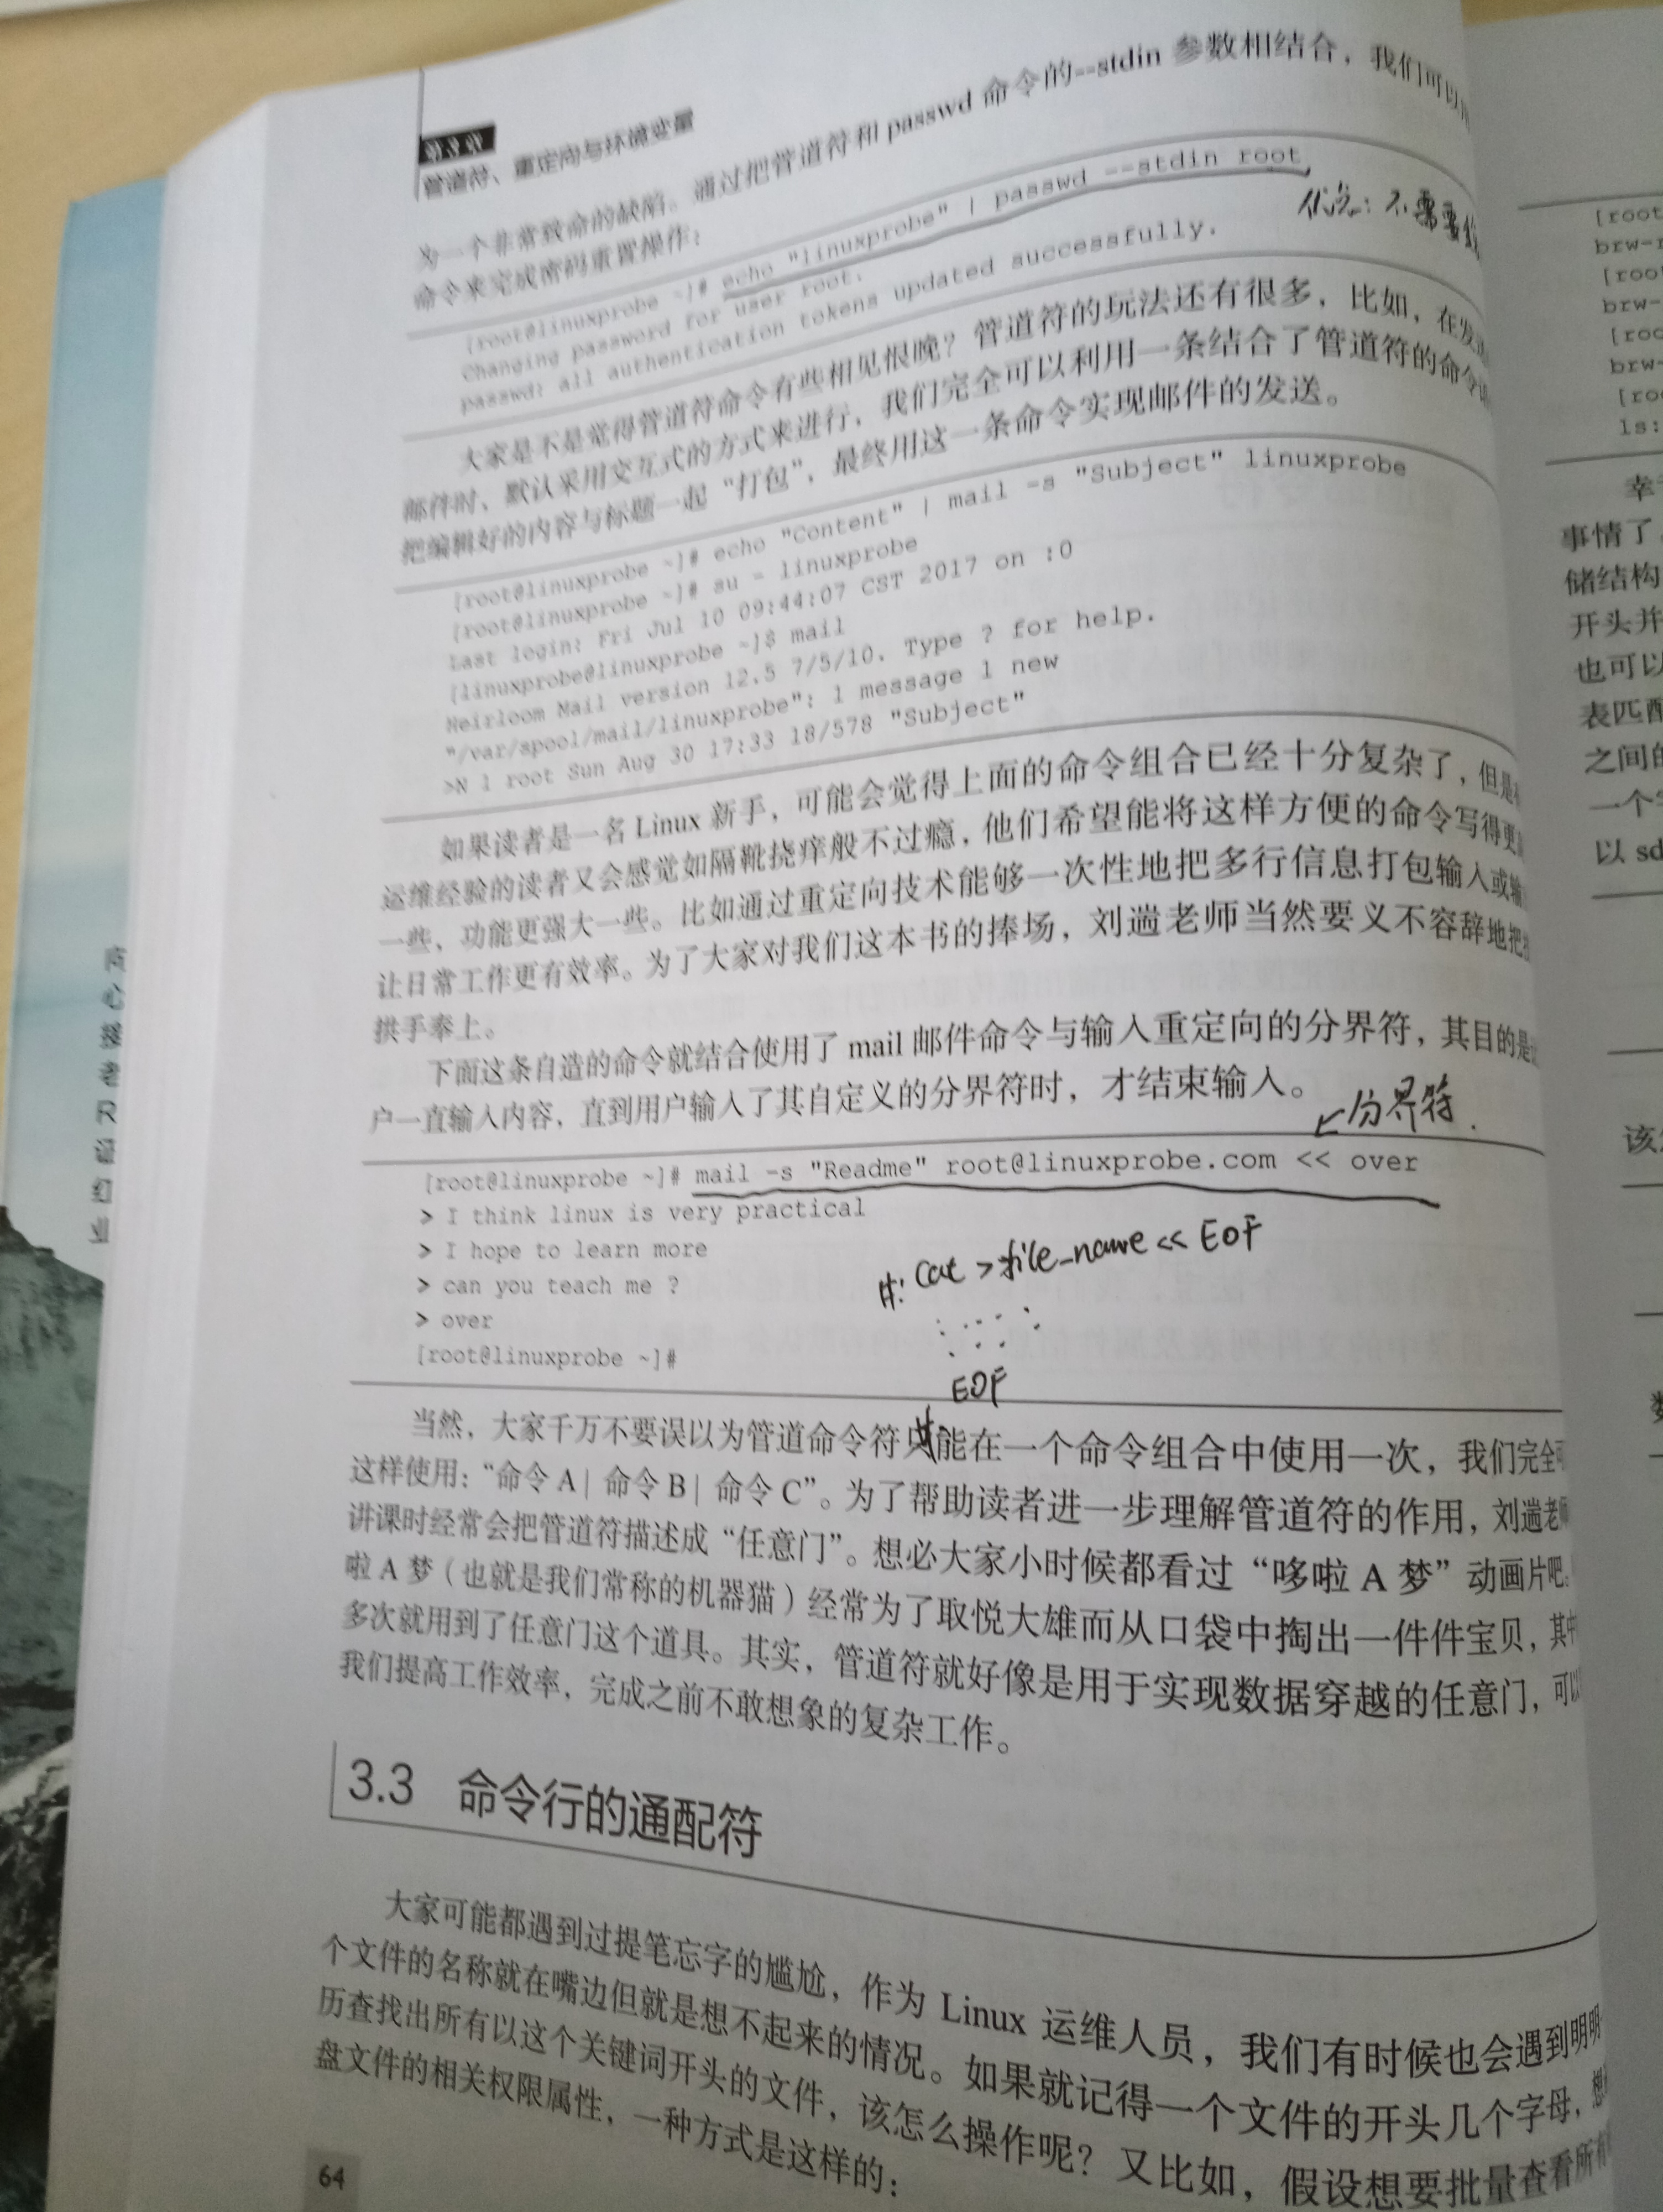 管道符、重定向与环境变量
为一个非常致命的缺陷。通过把管道符和 passwd 命令的--stdin 参数相结合，我们可以
命令来完成密码重置操作：
[root@linuxprobe ~]# echo "linuxprobe" | passwd --stdin root
优点：不需要
Changing password for user root.
passwd: all authentication tokens updated successfully.
大家是不是觉得管道符命令有些相见恨晚？管道符的玩法还有很多，比如，在发
邮件时，默认采用交互式的方式来进行，我们完全可以利用一条结合了管道符的命令
把编辑好的内容与标题一起“打包”，最终用这一条命令实现邮件的发送。
[root@linuxprobe ~]# echo "Content" | mail -s "Subject" linuxprobe
[root@linuxprobe ~]# su - linuxprobe
Last login: Fri Jul 10 09:44:07 CST 2017 on :0
[linuxprobe@linuxprobe ~]$ mail
Heirloom Mail version 12.5 7/5/10. Type ? for help.
"/var/spool/mail/linuxprobe": 1 message 1 new
>N 1 root Sun Aug 30 17:33 18/578 "Subject"
如果读者是一名 Linux 新手，可能会觉得上面的命令组合已经十分复杂了，但是
运维经验的读者又会感觉如隔靴挠痒般不过瘾，他们希望能将这样方便的命令写得更
一些，功能更强大一些。比如通过重定向技术能够一次性地把多行信息打包输入或输
让日常工作更有效率。为了大家对我们这本书的捧场，刘遄老师当然要义不容辞地把
拱手奉上。
下面这条自造的命令就结合使用了 mail 邮件命令与输入重定向的分界符，其目的是
户一直输入内容，直到用户输入了其自定义的分界符时，才结束输入。
↙分界符.
[root@linuxprobe ~]# mail -s "Readme" root@linuxprobe.com << over
> I think linux is very practical
> I hope to learn more
> can you teach me ?
> over
[root@linuxprobe ~]#
#: cat > file_name << EOF
EOF
#.
当然，大家千万不要误以为管道命令符只能在一个命令组合中使用一次，我们完全可
这样使用：“命令 A | 命令 B | 命令 C”。为了帮助读者进一步理解管道符的作用，刘遄老师
讲课时经常会把管道符描述成“任意门”。想必大家小时候都看过“哆啦 A 梦”动画片吧。
啦 A 梦（也就是我们常称的机器猫）经常为了取悦大雄而从口袋中掏出一件件宝贝，其中
多次就用到了任意门这个道具。其实，管道符就好像是用于实现数据穿越的任意门，可以
我们提高工作效率，完成之前不敢想象的复杂工作。
3.3 命令行的通配符
大家可能都遇到过提笔忘字的尴尬，作为 Linux 运维人员，我们有时候也会遇到明明
个文件的名称就在嘴边但就是想不起来的情况。如果就记得一个文件的开头几个字母，想
历查找出所有以这个关键词开头的文件，该怎么操作呢？又比如，假设想要批量查看所有
盘文件的相关权限属性，一种方式是这样的：
64
[root
brw-
[root
brw-
[roo
brw-
[ro
ls:
幸
事情了
储结构
开头并
也可以
表匹配
之间的
一个
以 sd
该
数